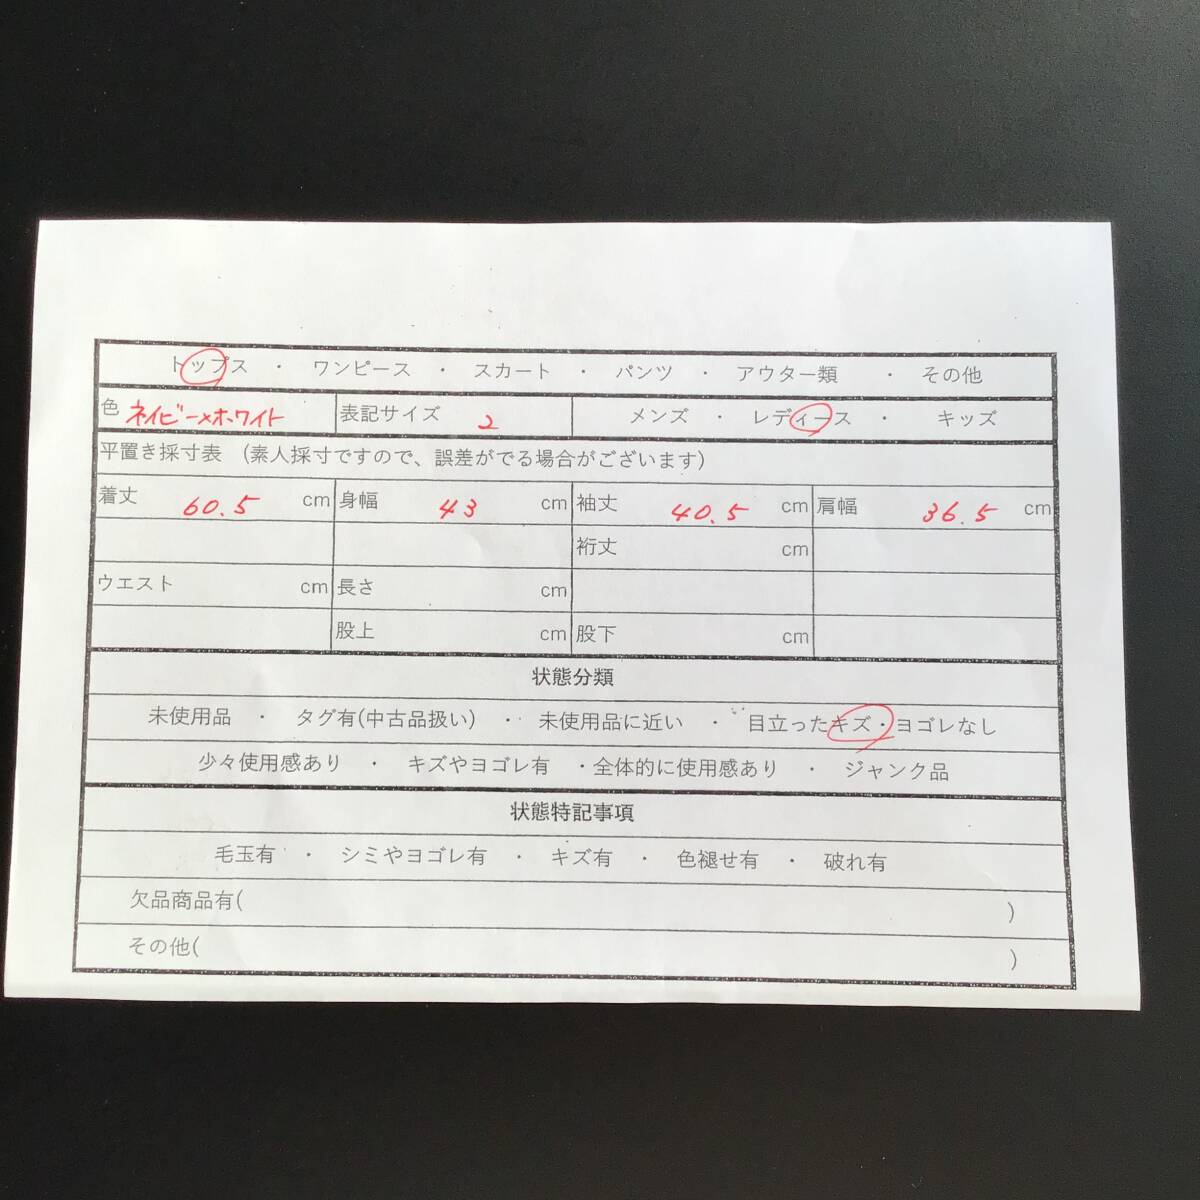 トップス ・ ワンピース ・ スカート ・ パンツ ・ アウター類 ・ その他
色 ネイビー×ホワイト 表記サイズ 2 メンズ ・ レディース ・ キッズ
平置き採寸表 (素人採寸ですので、誤差がでる場合がございます)
着丈 60.5 cm 身幅 43 cm 袖丈 40.5 cm 肩幅 36.5 cm
裄丈 cm
ウエスト cm 長さ cm
股上 cm 股下 cm
状態分類
未使用品 ・ タグ有(中古品扱い) ・ 未使用品に近い ・ 目立ったキズ・ヨゴレなし
少々使用感あり ・ キズやヨゴレ有 ・全体的に使用感あり ・ ジャンク品
状態特記事項
毛玉有 ・ シミやヨゴレ有 ・ キズ有 ・ 色褪せ有 ・ 破れ有
欠品商品有( )
その他( )